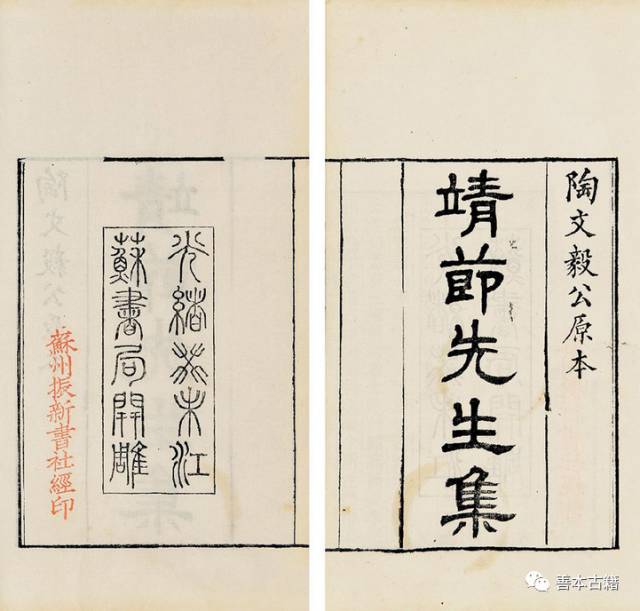 陶文毅公原本
靖節先生集
光緒癸未江
蘇書局開雕
蘇州振新書社經印
善本古籍